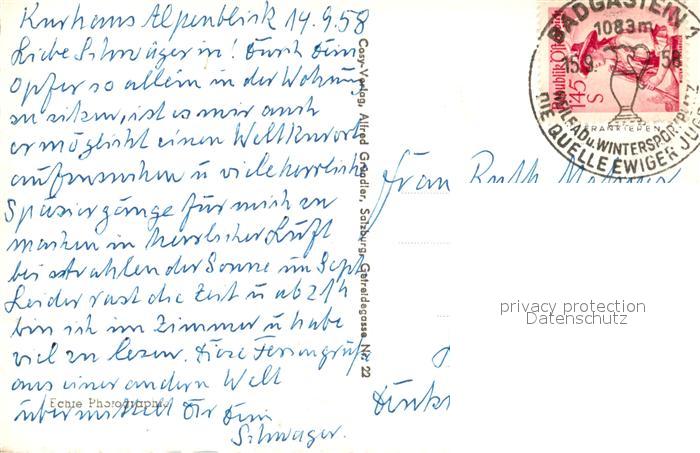 Kurhaus Alpenblick 14.9.58
Liebe Schwägerin! Durch Dein
Opfer so allein in der Wohnung
zu sitzen, ist es mir auch
ermöglicht einen Weltkurort
aufzusuchen u viele herrliche
Spaziergänge für mich zu
machen in herrlicher Luft
bei strahlender Sonne im Sept.
Leider rast die Zeit u ab 21h
bin ich im Zimmer u habe
viel zu lesen. Diese Feriengrüße
aus einer andern Welt
übermittelt Dir Dein
Schwager.
Echte Photographie
Cosy-Verlag, Alfred Gründler, Salzburg, Getreidegasse Nr. 22
BADGASTEIN 1
1083m
15.9. 58
Republik Österreich
1.45 S
FRANKIEREN
HEILBAD u. WINTERSPORTPLATZ
DIE QUELLE EWIGER JUGEND
Frau Ruth
privacy protection
Datenschutz